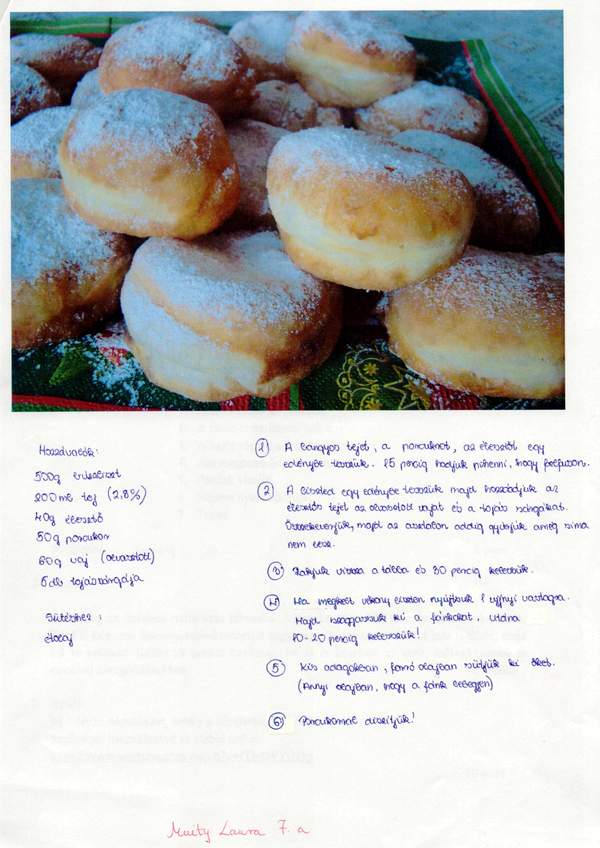 Hozzávalók:
500g búzaliszt
200ml tej (2,8%)
40g élesztő
50g porcukor
60g vaj (olvasztott)
5db tojássárgája
Sütéshez:
Olaj
1 A langyos tejet, a porcukrot, az élesztőt egy
edénybe tesszük. 15 percig hagyjuk pihenni, hogy felfusson.
2 A lisztet egy edénybe tesszük majd hozzáadjuk az
élesztős tejet az olvasztott vajat és a tojás sárgákat.
Összekeverjük, majd az asztalon addig gyúrjuk amég sima
nem lesz.
3 Rakjuk vissza a tálba és 30 percig kelesszük.
4 Ha megkelt vékony liszten nyújtsuk 1 ujjnyi vastagra.
Majd szaggassuk ki a fánkokat. Utána
10-20 percig kelesszük!
5 Kis adagokban, forró olajban süljük ki őket.
(Annyi olajban, hogy a fánk lebegjen)
6 Porcukorral díszítjük!
Muity Laura 7. a